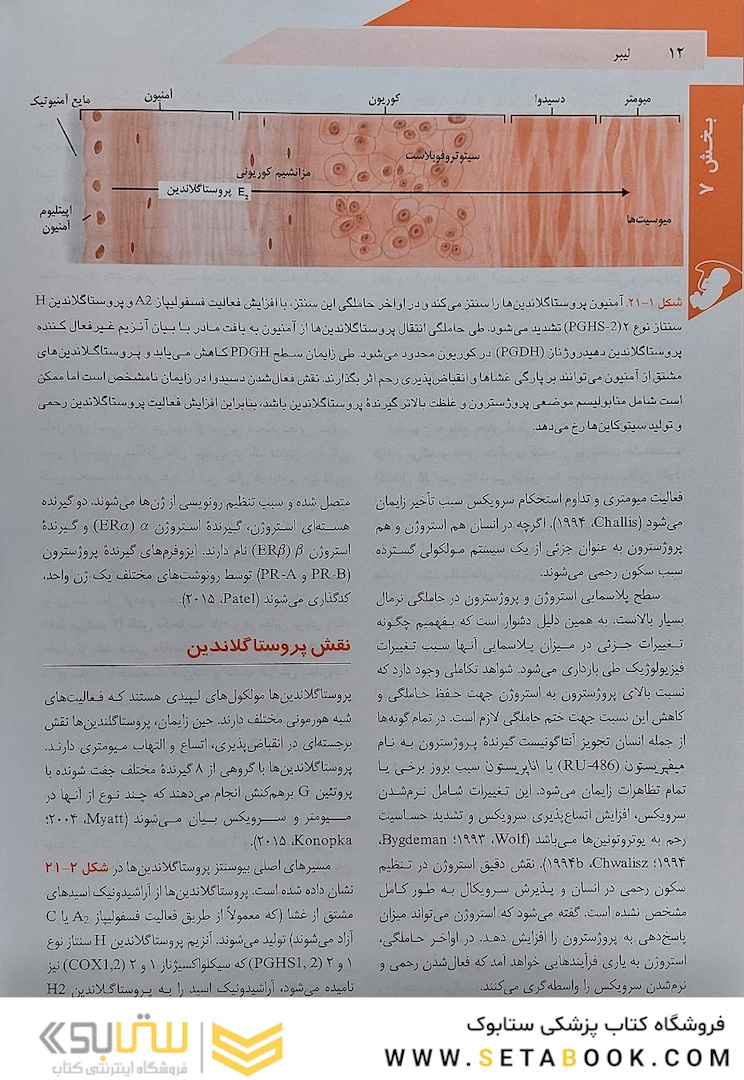 ۱۲ لیبر
بخش ۷
میومتر
دسیدوا
کوریون
آمنیون
مایع آمنیوتیک
سیتوتروفوبلاست
مزانشیم کوریونی
پروستاگلاندین E2
میوسیت‌ها
اپیتلیوم
آمنیون
شکل ۱-۲۱. آمنیون پروستاگلاندین‌ها را سنتز می‌کند و در اواخر حاملگی این سنتز، با افزایش فعالیت فسفولیپاز A2 و پروستاگلاندین H
سنتاز نوع ۲ (PGHS-2) تشدید می‌شود. طی حاملگی انتقال پروستاگلاندین‌ها از آمنیون به بافت مادر با بیان آنزیم غیرفعال کننده
پروستاگلاندین دهیدروژناز (PGDH) در کوریون محدود می‌شود. طی زایمان سطح PDGH کاهش می‌یابد و پروستاگلاندین‌های
مشتق از آمنیون می‌توانند بر پارگی غشاها و انقباض‌پذیری رحم اثر بگذارند. نقش فعال‌شدن دسیدوا در زایمان نامشخص است اما ممکن
است شامل متابولیسم موضعی پروژسترون و غلظت بالاتر گیرندهٔ پروستاگلاندین باشد، بنابراین افزایش فعالیت پروستاگلاندین رحمی
و تولید سیتوکاین‌ها رخ می‌دهد.
فعالیت میومتری و تداوم استحکام سرویکس سبب تأخیر زایمان
می‌شود (Challis، ۱۹۹۴). اگرچه در انسان هم استروژن و هم
پروژسترون به عنوان جزئی از یک سیستم مولکولی گسترده
سبب سکون رحمی می‌شوند.
سطح پلاسمایی استروژن و پروژسترون در حاملگی نرمال
بسیار بالاست. به همین دلیل دشوار است که بفهمیم چگونه
تغییرات جزئی در میزان پلاسمایی آنها سبب تغییرات
فیزیولوژیک طی بارداری می‌شود. شواهد تکاملی وجود دارد که
نسبت بالای پروژسترون به استروژن جهت حفظ حاملگی و
کاهش این نسبت جهت ختم حاملگی لازم است. در تمام گونه‌ها
از جمله انسان تجویز آنتاگونیست گیرندهٔ پروژسترون به نام
میفپریستون (RU-486) یا اناپریستون سبب بروز برخی یا
تمام تظاهرات زایمان می‌شود. این تغییرات شامل نرم‌شدن
سرویکس، افزایش اتساع‌پذیری سرویکس و تشدید حساسیت
رحم به یوتروتونین‌ها می‌باشد (Wolf، ۱۹۹۳؛ Bygdeman،
۱۹۹۴؛ Chwalisz، ۱۹۹۴b). نقش دقیق استروژن در تنظیم
سکون رحمی در انسان و پذیرش سرویکال به طور کامل
مشخص نشده است. گفته می‌شود که استروژن می‌تواند میزان
پاسخ‌دهی به پروژسترون را افزایش دهد. در اواخر حاملگی،
استروژن به یاری فرآیندهایی خواهد آمد که فعال‌شدن رحمی و
نرم‌شدن سرویکس را واسطه‌گری می‌کنند.
متصل شده و سبب تنظیم رونویسی از ژن‌ها می‌شوند. دو گیرنده
هسته‌ای استروژن، گیرندهٔ استروژن α (ERα) و گیرندهٔ
استروژن β (ERβ) نام دارند. ایزوفرم‌های گیرندهٔ پروژسترون
(PR-A و PR-B) توسط رونوشت‌های مختلف یک ژن واحد،
کدگذاری می‌شوند (Patel، ۲۰۱۵).
نقش پروستاگلاندین
پروستاگلاندین‌ها مولکول‌های لیپیدی هستند که فعالیت‌های
شبه هورمونی مختلف دارند. حین زایمان، پروستاگلندین‌ها نقش
برجسته‌ای در انقباض‌پذیری، اتساع و التهاب میومتری دارند.
پروستاگلاندین‌ها با گروهی از ۸ گیرندهٔ مختلف جفت شونده با
پروتئین G برهم‌کنش انجام می‌دهند که چند نوع از آنها در
میومتر و سرویکس بیان می‌شوند (Myatt، ۲۰۰۴؛
Konopka، ۲۰۱۵).
مسیرهای اصلی بیوسنتز پروستاگلاندین‌ها در شکل ۲-۲۱
نشان داده شده است. پروستاگلاندین‌ها از آراشیدونیک اسیدهای
مشتق از غشا (که معمولاً از طریق فعالیت فسفولیپاز A2 یا C
آزاد می‌شوند) تولید می‌شوند. آنزیم پروستاگلاندین H سنتاز نوع
۱ و ۲ (PGHS1, 2) که سیکلواکسیژناز ۱ و ۲ (COX1,2) نیز
نامیده می‌شود، آراشیدونیک اسید را به پروستاگلاندین H2
فروشگاه کتاب پزشکی ستابوک
WWW.SETABOOK.COM
ستابوک
فروشگاه اینترنتی کتاب